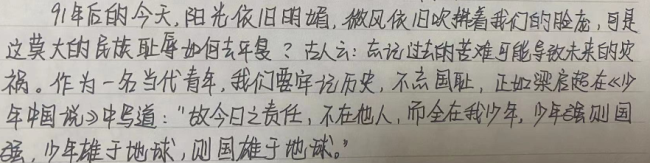 91年后的今天,阳光依旧明媚,微风依旧吹拂着我们的脸庞,可是
这莫大的民族耻辱如何去平复?古人云:忘记过去的苦难可能导致未来的灾
祸。作为一名当代青年,我们要牢记历史,不忘国耻,正如梁启超在《少
年中国说》中写道:"故今日之责任,不在他人,而全在我少年,少年强则国
强,少年雄于地球,则国雄于地球。"